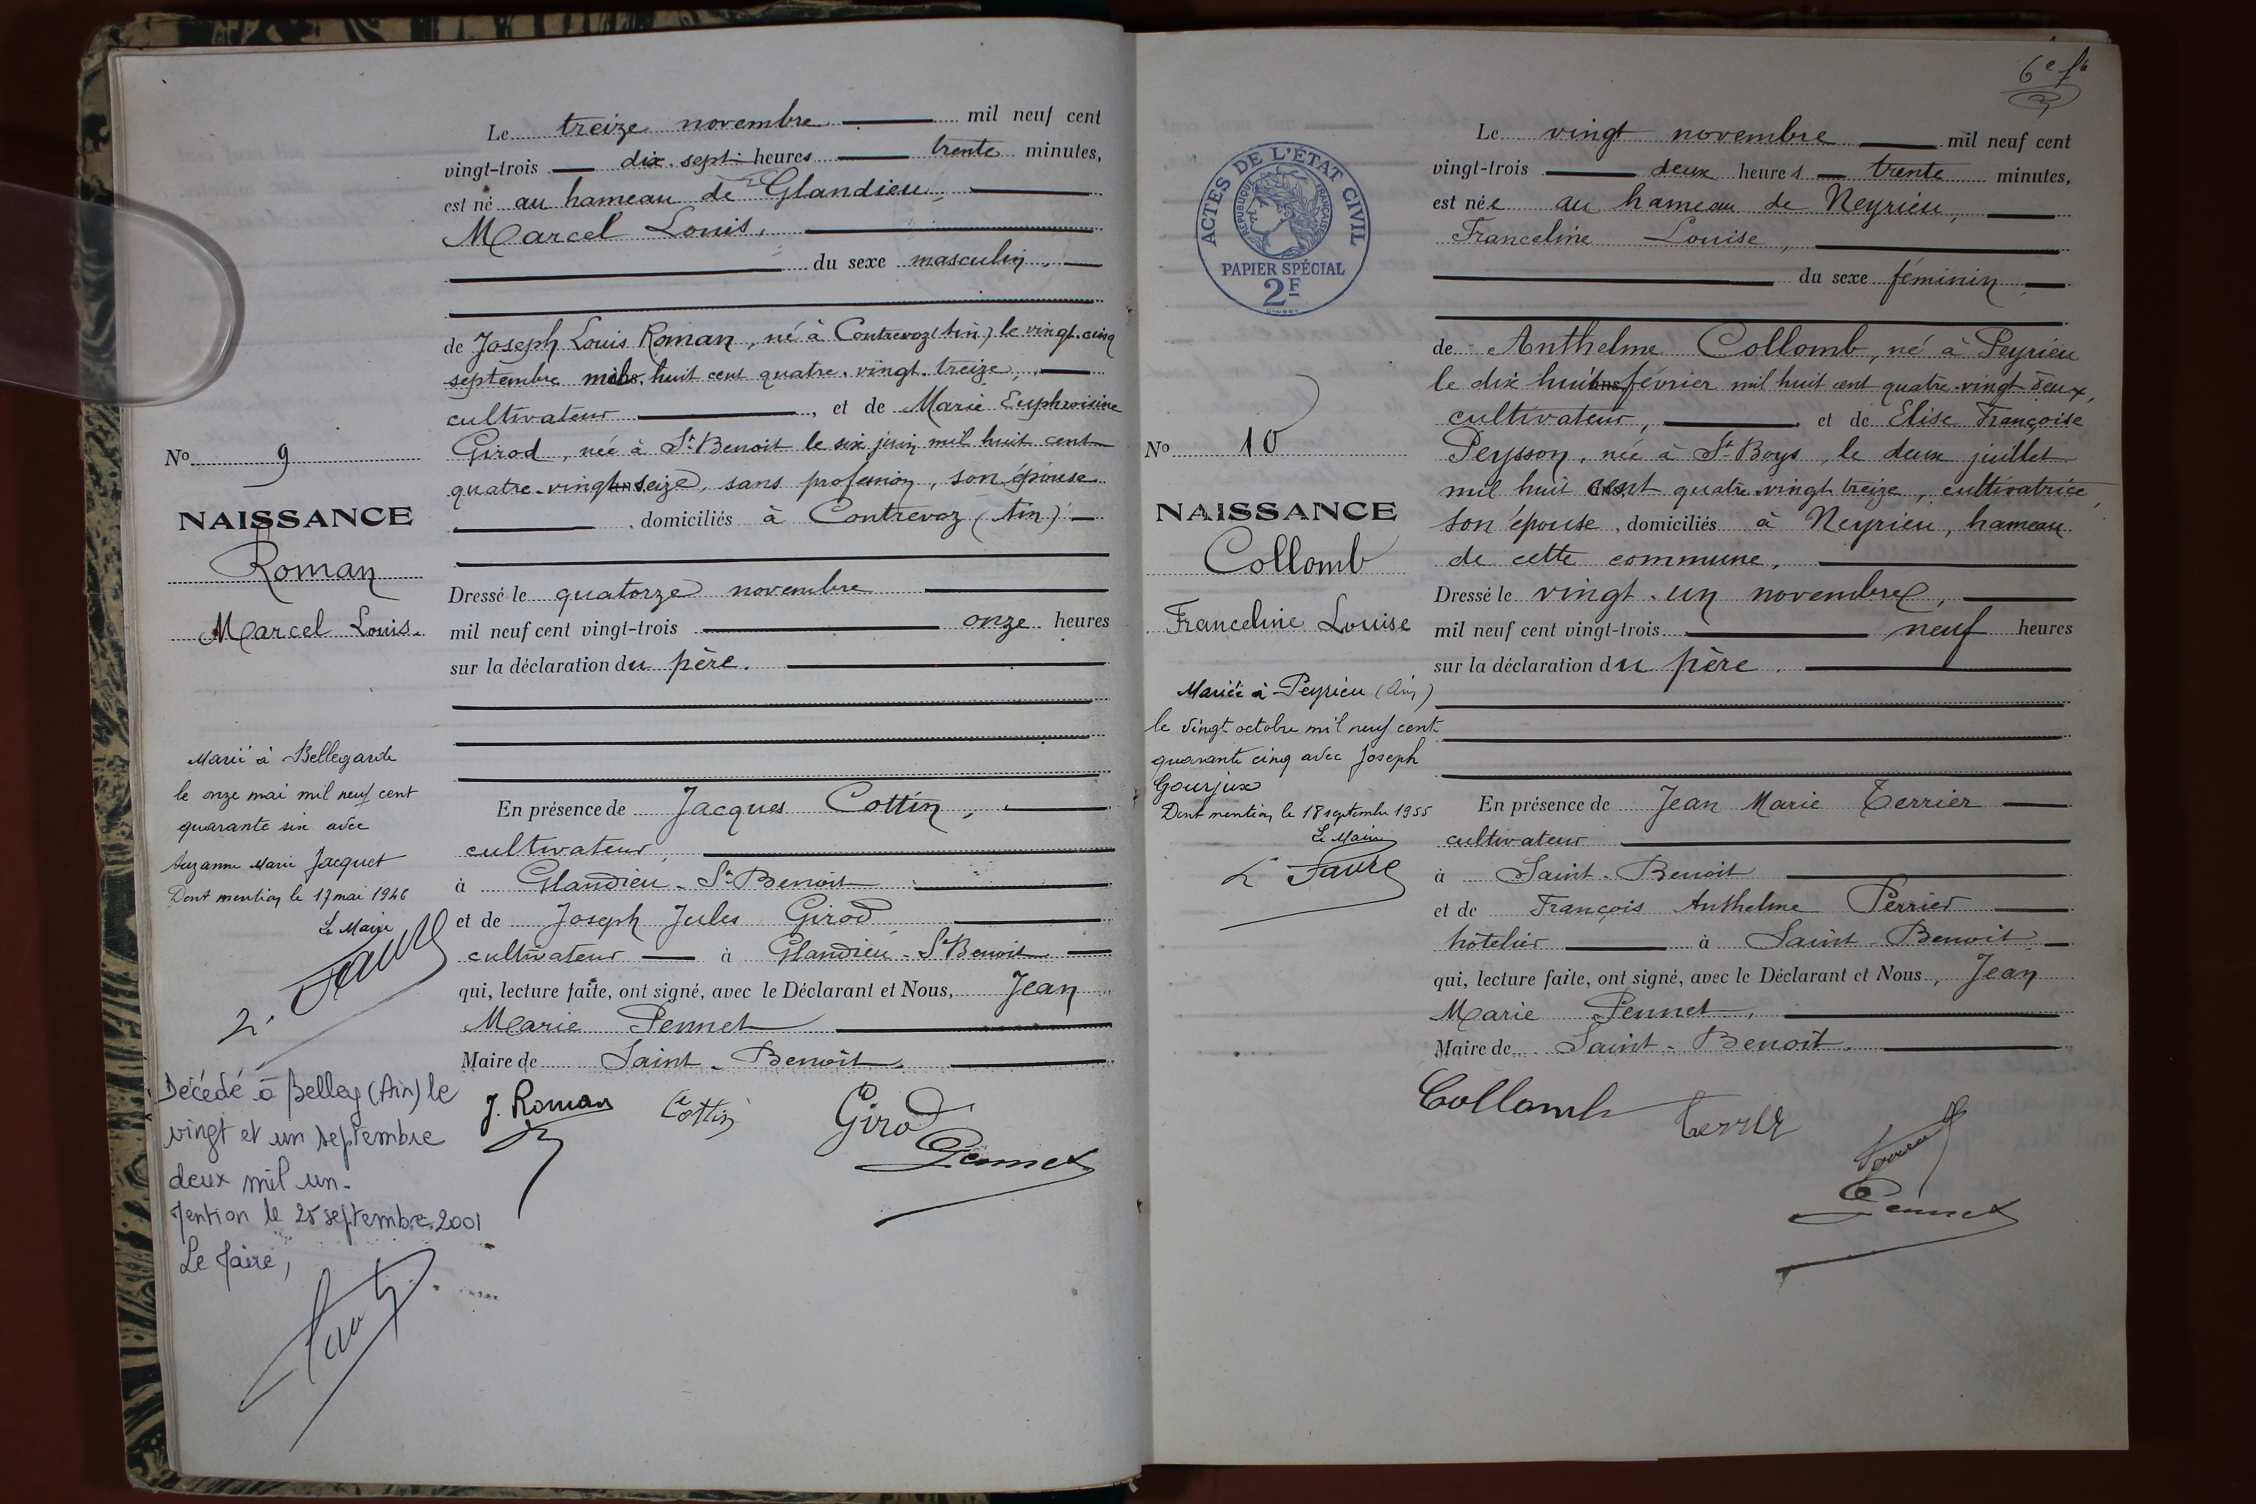 Le treize novembre mil neuf cent
vingt-trois dix-sept heures trente minutes,
est né au hameau de Glandieu,
Marcel Louis,
du sexe masculin,
de Joseph Louis Roman, né à Contrevoz (Ain) le vingt-cinq
septembre mil huit cent quatre-vingt-treize,
cultivateur, et de Marie Euphroisine
Girod, née à St Benoit le six juin mil huit cent
quatre-vingt seize, sans profession, son épouse
, domiciliés à Contrevoz (Ain)
Dressé le quatorze novembre
mil neuf cent vingt-trois onze heures
sur la déclaration du père.
En présence de Jacques Cottin,
cultivateur,
à Glandieu - St Benoit
et de Joseph Jules Girod
cultivateur à Glandieu - St Benoit
qui, lecture faite, ont signé, avec le Déclarant et Nous, Jean
Marie Pennet
Maire de Saint-Benoît.
J. Roman Cottin Girod
Pennet
No 9
NAISSANCE
Roman
Marcel Louis.
Marié à Bellegarde
le onze mai mil neuf cent
quarante six avec
Suzanne Marie Jacquet
Dont mention le 17 mai 1946
Le Maire
L. Favre
Décédé à Belley (Ain) le
vingt et un septembre
deux mil un.
Mention le 25 septembre 2001
Le Maire,
6e ft
ACTES DE L'ÉTAT CIVIL
RÉPUBLIQUE FRANÇAISE
PAPIER SPÉCIAL
2F
No 10
NAISSANCE
Collomb
Franceline Louise
Mariée à Peyrieu (Ain)
le vingt octobre mil neuf cent
quarante cinq avec Joseph
Gourjux
Dont mention le 18 septembre 1955
Le Maire
L Favre
Le vingt novembre mil neuf cent
vingt-trois deux heures trente minutes,
est née au hameau de Neyrieu,
Franceline Louise,
du sexe féminin
de Anthelme Collomb, né à Peyrieu
le dix huit février mil huit cent quatre-vingt deux,
cultivateur, et de Elise Françoise
Peysson, née à St-Boys, le deux juillet
mil huit cent quatre-vingt treize, cultivatrice,
son épouse, domiciliés à Neyrieu, hameau
de cette commune,
Dressé le vingt-un novembre,
mil neuf cent vingt-trois neuf heures
sur la déclaration du père.
En présence de Jean Marie Terrier
cultivateur
à Saint-Benoit
et de François Anthelme Perrier
hôtelier à Saint-Benoit
qui, lecture faite, ont signé, avec le Déclarant et Nous, Jean
Marie Pennet,
Maire de Saint-Benoît.
Collomb Terrier
Pennet